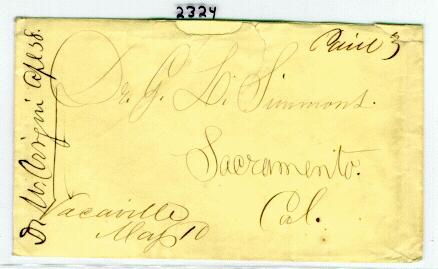 2324
Paid 3
Dr. G. L. Simmons.
Sacramento.
Cal.
Vacaville
May 10
Dr.